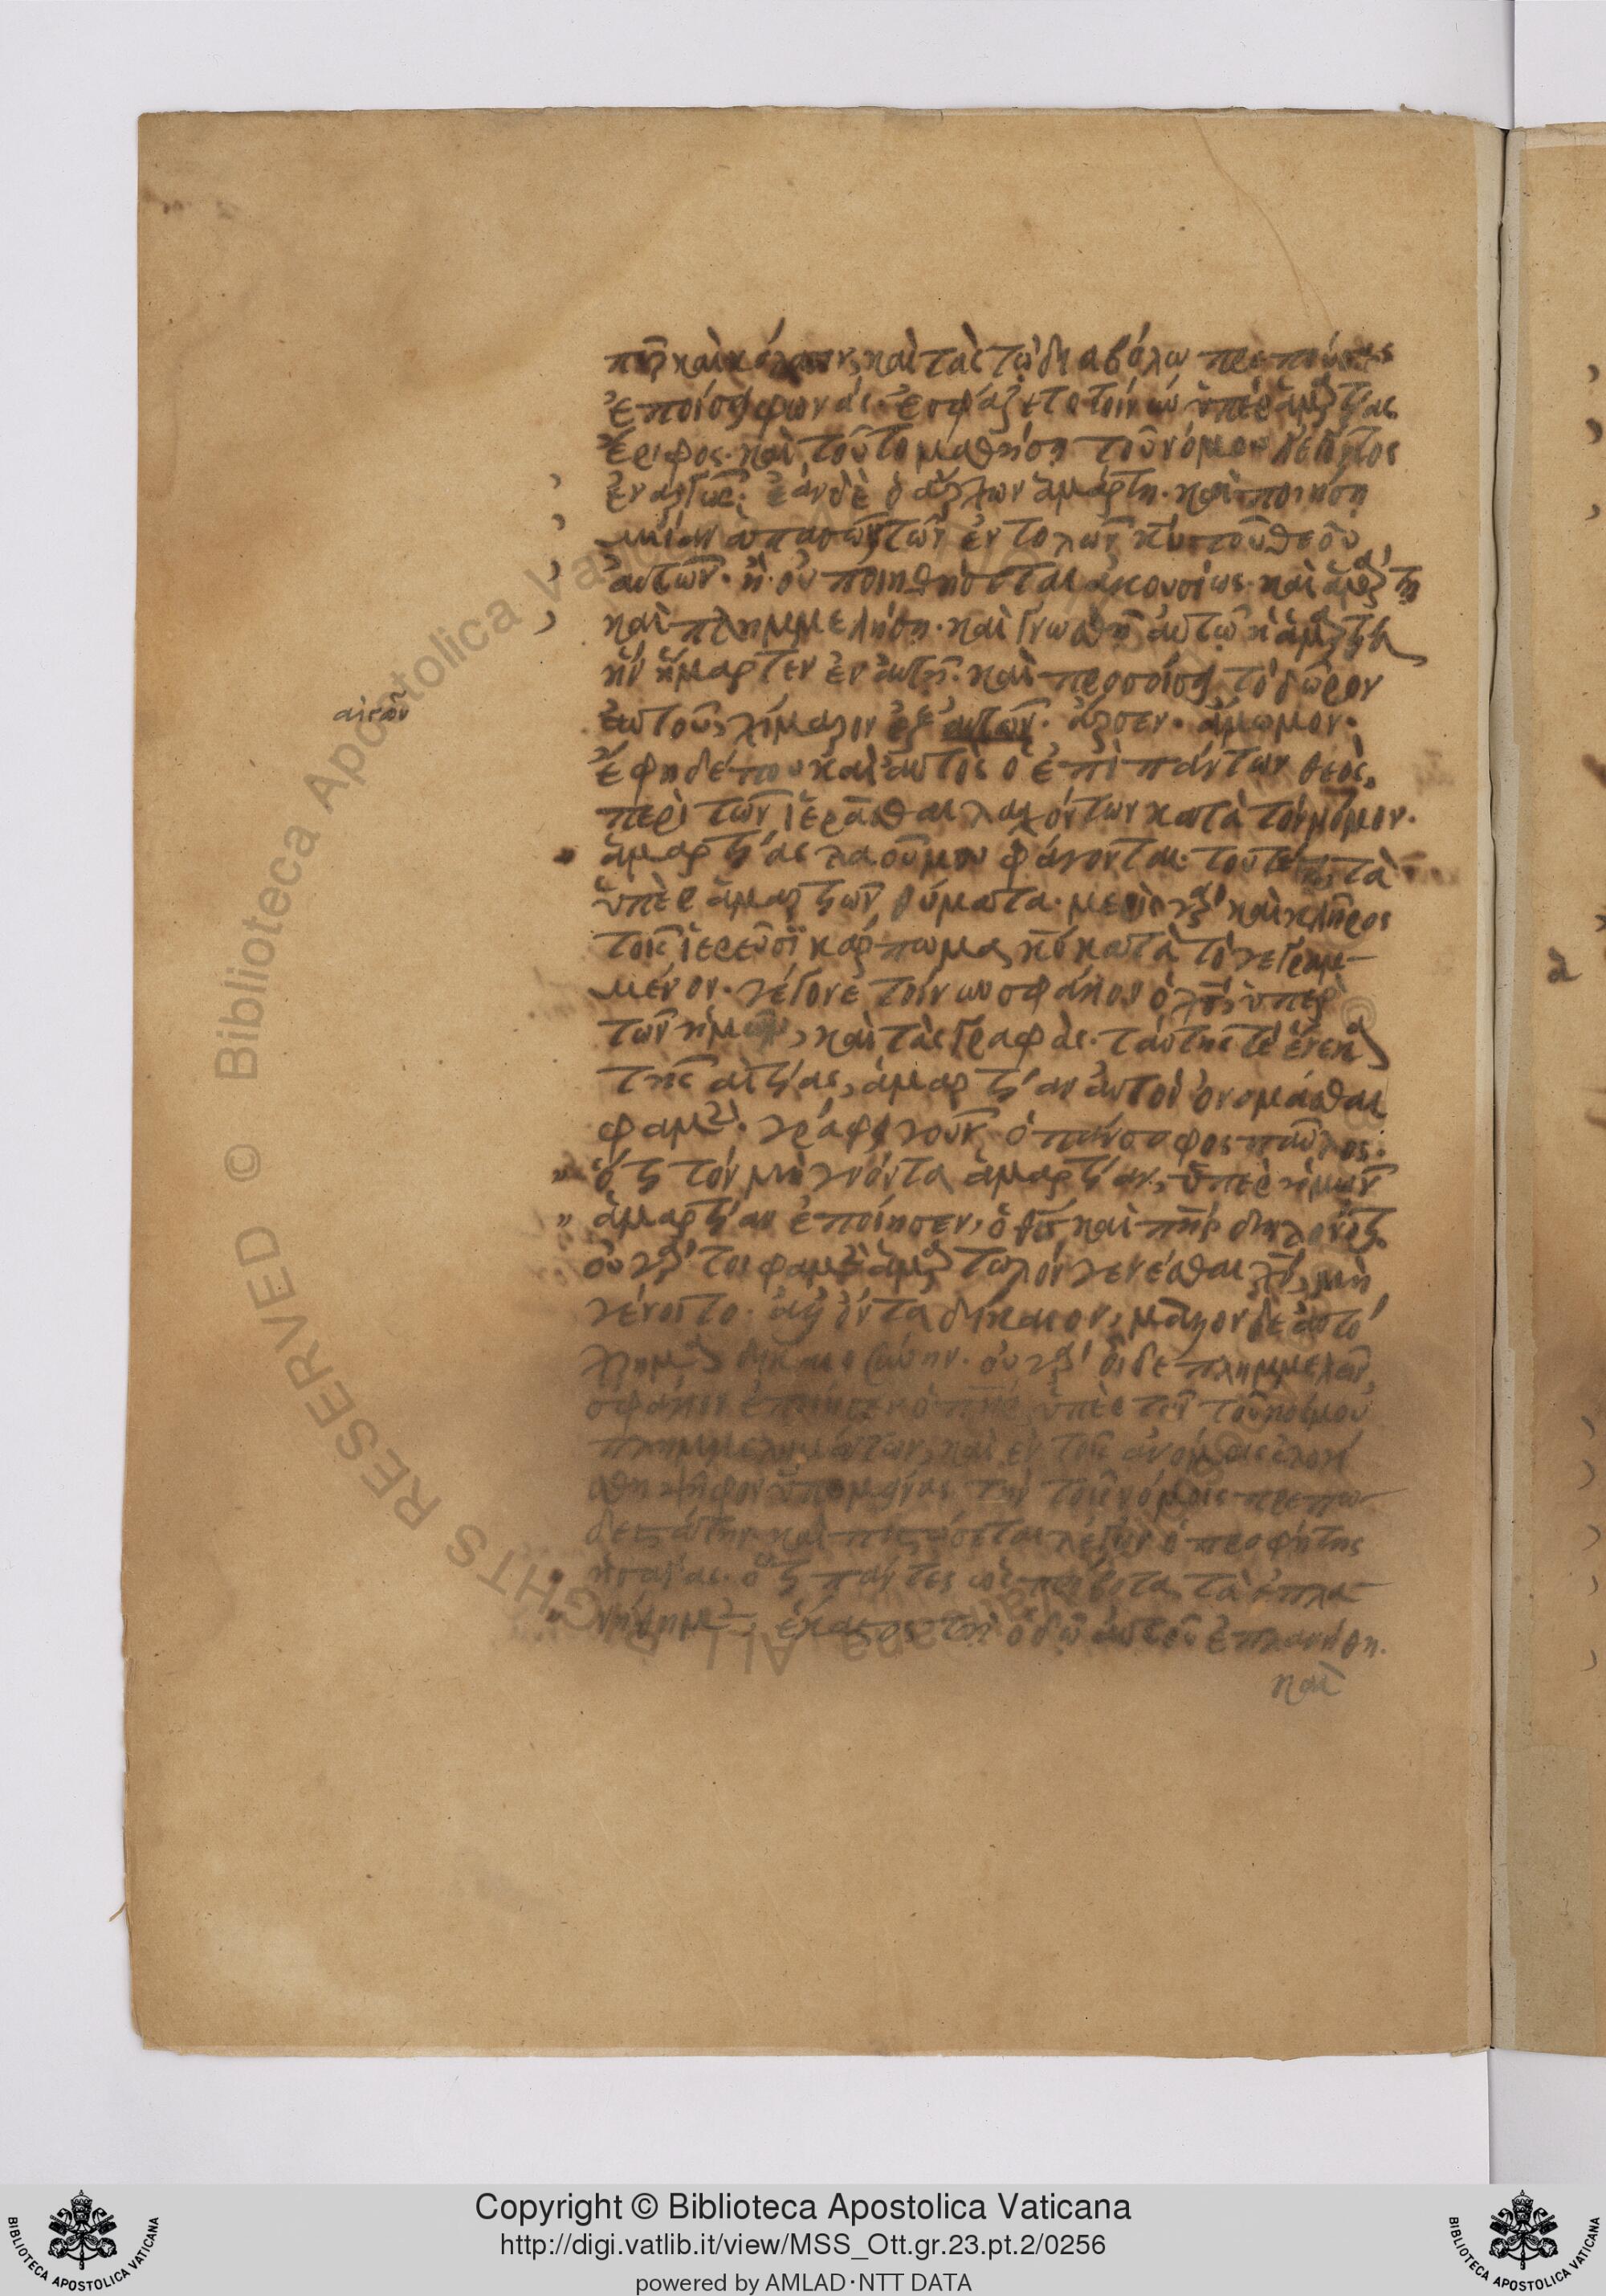 πῦρ καὶ κόλασιν, καὶ τὰς τῷ διαβόλῳ πρεπούσας
ἐποίσει φωνάς. ἐσφάζετο τοίνυν ὑπὲρ ἁμαρτίας
ἔριφος. καὶ τοῦτο μαθήση τοῦ νόμου λέγοντος
ἐναργῶς. ἐὰν δὲ ὁ ἄρχων ἁμάρτη. καὶ ποιήση
μίαν ἀπὸ πασῶν τῶν ἐντολῶν κυ τοῦ θεοῦ
αὐτῶν. ἣ οὐ ποιηθήσεται ἀκουσίως. καὶ ἁμάρτη
καὶ πλημμελήση. καὶ γνωσθῆ αὐτῶ ἡ ἁμαρτία
ἣν ἥμαρτεν ἐν αὐτῆ. καὶ προσοίσει τὸ δῶρον
αὐτοῦ, χίμαρον ἐξ αὐτῶν. ἄρσεν. ἄμωμον.
αἰγῶν
ἔφη δέ που καὶ αὐτὸς ὁ ἐπὶ πάντων θεὸς,
περὶ τῶν ἱερᾶσθαι λαχόντων κατὰ τὸν νόμον.
ἁμαρτίας λαοῦ μου φάγονται. τουτέστι, τὰ
ὑπὲρ ἁμαρτιῶν θύματα. μερὶς γὰρ καὶ κλῆρος
τοῖς ἱερεῦσι κάρπωμα κυ κατὰ τὸ γεγραμ-
μένον. γέγονε τοίνυν σφάγιον ὁ χς ὑπὲρ
τῶν ἡμῶν, κατὰ τὰς γραφὰς. ταύτης τε ἕνεκα
τῆς αἰτίας, ἁμαρτίαν αὐτὸν ὀνομάσθαι
φαμὲν. γράφει γοῦν ὁ πάνσοφος παῦλος.
ὅτι τὸν μὴ γνόντα ἁμαρτίαν, ὑπὲρ ἡμῶν
ἁμαρτίαν ἐποίησεν, ὁ θς καὶ πηρ δηλονότι.
οὐ γάρ τοι φαμὲν ἁμαρτωλὸν γενέσθαι χν, μὴ
γένοιτο. ἀλλ' ὄντα δίκαιον, μᾶλλον δὲ αὐτό
χρημα δικαιοσύνην. οὐ γὰρ οἶδε πλημμελεῖν,
σφάγιον ἐποίησεν ὁ πηρ ὑπὲρ τῶν τοῦ κόσμου
πλημμελημάτων, καὶ ἐν τοῖς ἀνόμοις ἐλογί
σθη ψῆφον ὑπομείνας τὴν τοῖς ἀνόμοις πρεπω-
δεστάτην. καὶ πιστώσεται λέγων ὁ προφήτης
ἡσαΐας. ὅτι πάντες ὡς πρόβατα τὰ ἐπλα-
νήθημεν, ἕκαστος τῆ ὁδῶ αὐτοῦ ἐπλανήθη.
καὶ
Copyright © Biblioteca Apostolica Vaticana
http://digi.vatlib.it/view/MSS_Ott.gr.23.pt.2/0256
powered by AMLAD·NTT DATA